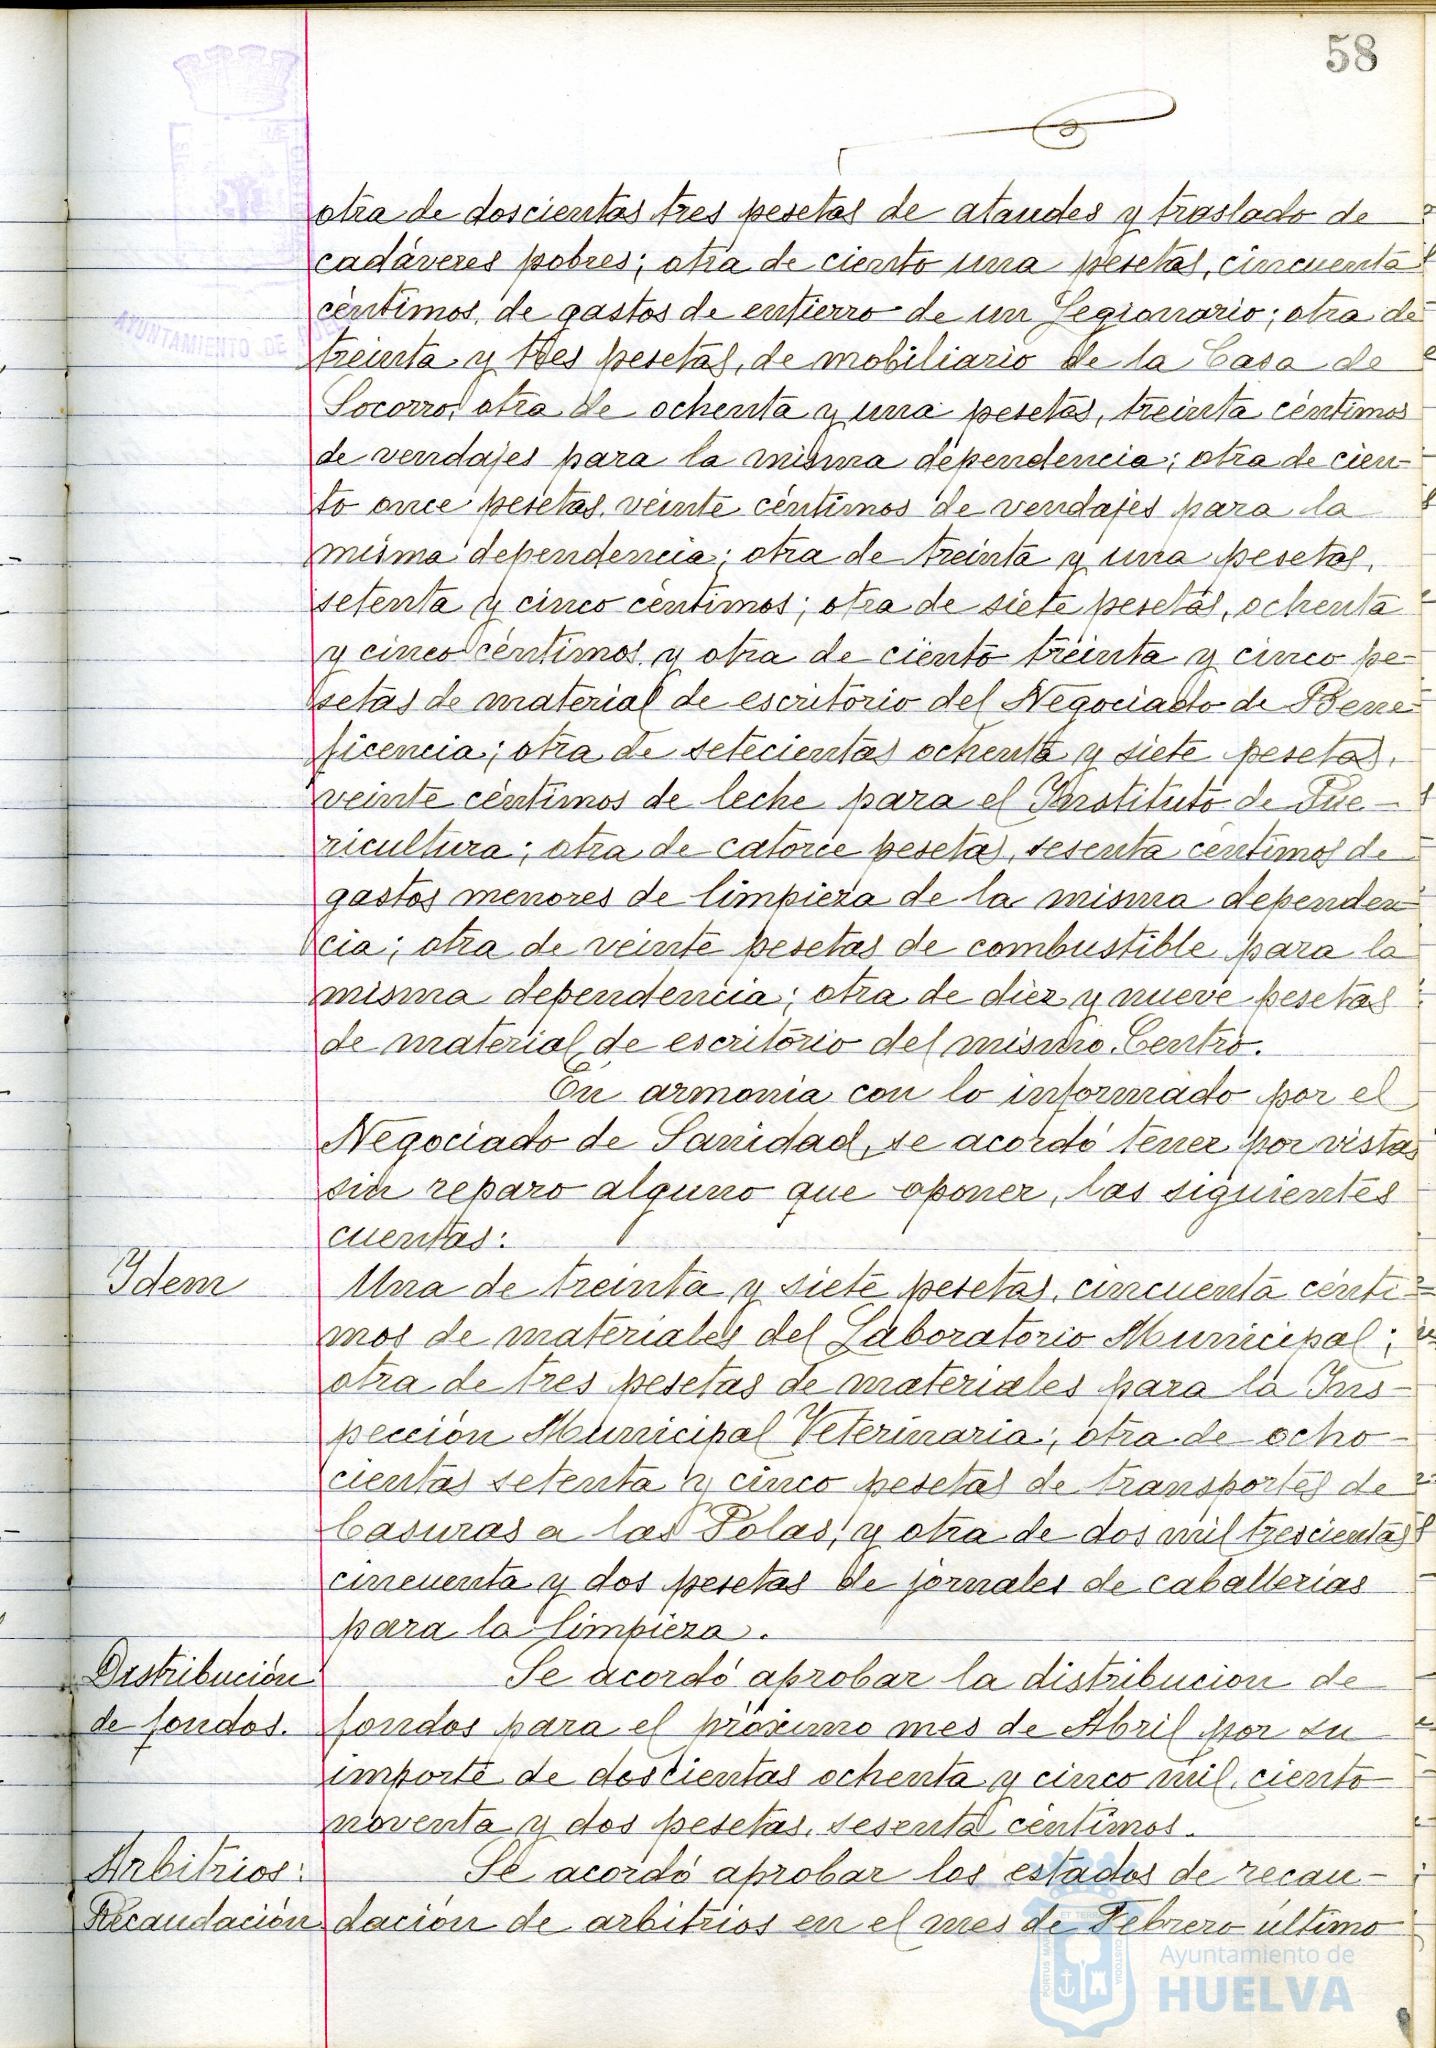 58
otra de doscientas tres pesetas de ataudes y traslado de
cadáveres pobres; otra de ciento una pesetas, cincuenta
céntimos, de gastos de entierro de un Legionario; otra de
treinta y tres pesetas, de mobiliario de la Casa de
Socorro; otra de ochenta y una pesetas, treinta céntimos
de vendajes para la misma dependencia; otra de cien-
to once pesetas, veinte céntimos de vendajes para la
misma dependencia; otra de treinta y una pesetas,
setenta y cinco céntimos; otra de siete pesetas, ochenta
y cinco céntimos y otra de ciento treinta y cinco pe-
setas de material de escritorio del Negociado de Bene-
ficencia; otra de setecientas ochenta y siete pesetas,
veinte céntimos de leche para el Instituto de Pue-
ricultura; otra de catorce pesetas, sesenta céntimos de
gastos menores de limpieza de la misma dependen-
cia; otra de veinte pesetas de combustible para la
misma dependencia; otra de diez y nueve pesetas
de material de escritorio del mismo Centro.
En armonia con lo informado por el
Negociado de Sanidad, se acordó tener por vistas
sin reparo alguno que oponer, las siguientes
cuentas:
Idem
Una de treinta y siete pesetas, cincuenta cénti-
mos de materiales del Laboratorio Municipal;
otra de tres pesetas de materiales para la Ins-
pección Municipal Veterinaria; otra de ocho-
cientas setenta y cinco pesetas de transportes de
basuras a las Polas, y otra de dos mil trescientas
cincuenta y dos pesetas de jornales de caballerias
para la limpieza.
Distribución
de fondos.
Se acordó aprobar la distribucion de
fondos para el próximo mes de Abril por su
importe de doscientas ochenta y cinco mil, ciento
noventa y dos pesetas, sesenta céntimos.
Arbitrios:
Recaudación
Se acordó aprobar los estados de recau-
dación de arbitrios en el mes de Febrero último
AYUNTAMIENTO DE
Ayuntamiento de
HUELVA